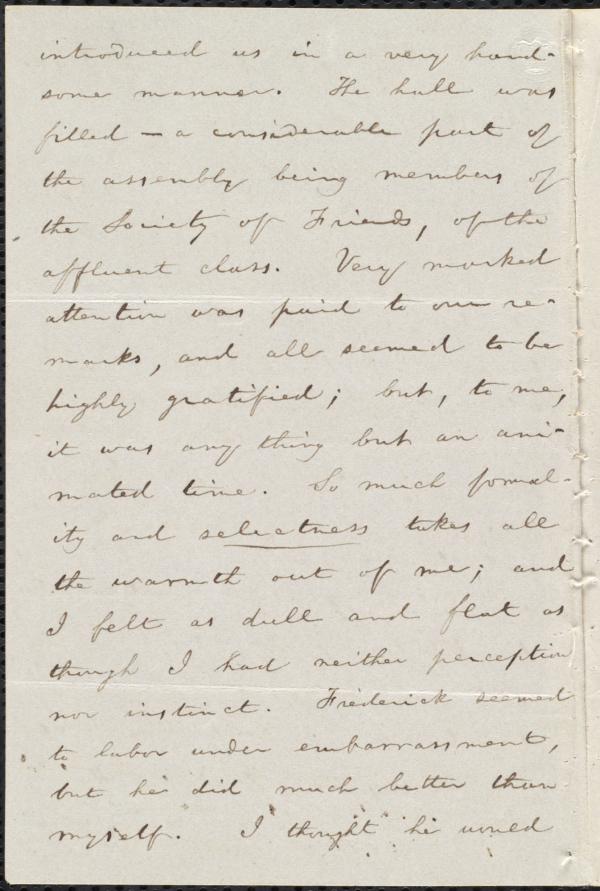 introduced us in a very hand-
some manner. The hall was
filled — a considerable part of
the assembly being members of
the Society of Friends, of the
affluent class. Very marked
attention was paid to our re-
marks, and all seemed to be
highly gratified; but, to me,
it was any thing but an ani-
mated time. So much formal-
ity and selectness takes all
the warmth out of me; and
I felt as dull and flat as
though I had neither perception
nor instinct. Frederick seemed
to labor under embarrassment,
but he did much better than
myself. I thought he would